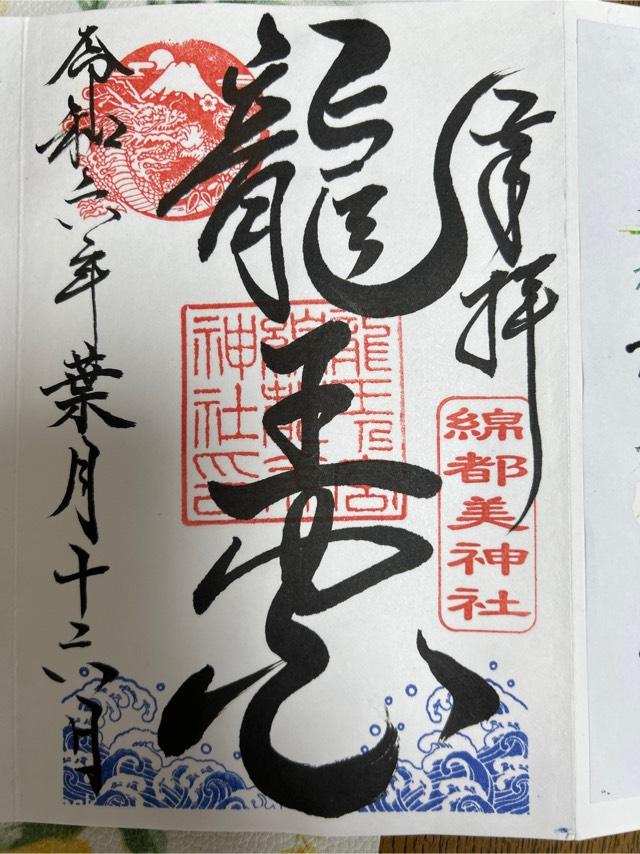 奉拝
綿都美神社
龍王宮
龍王宮
綿都美
神社印
令和六年葉月十六日